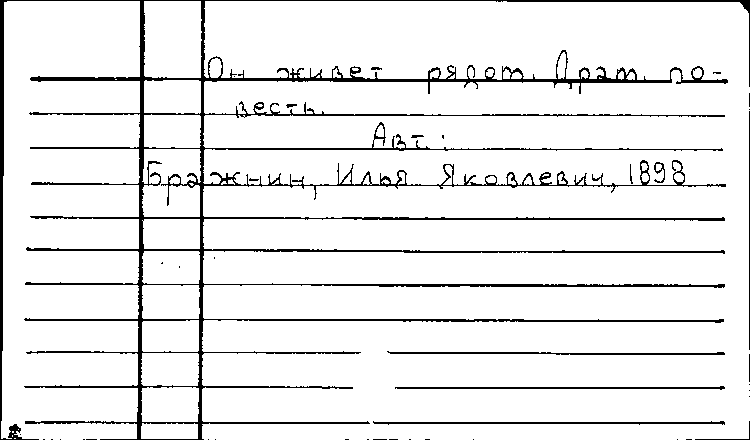 Он живет рядом. Драм. по-
весть.
Авт.:
Бражнин, Илья Яковлевич, 1898